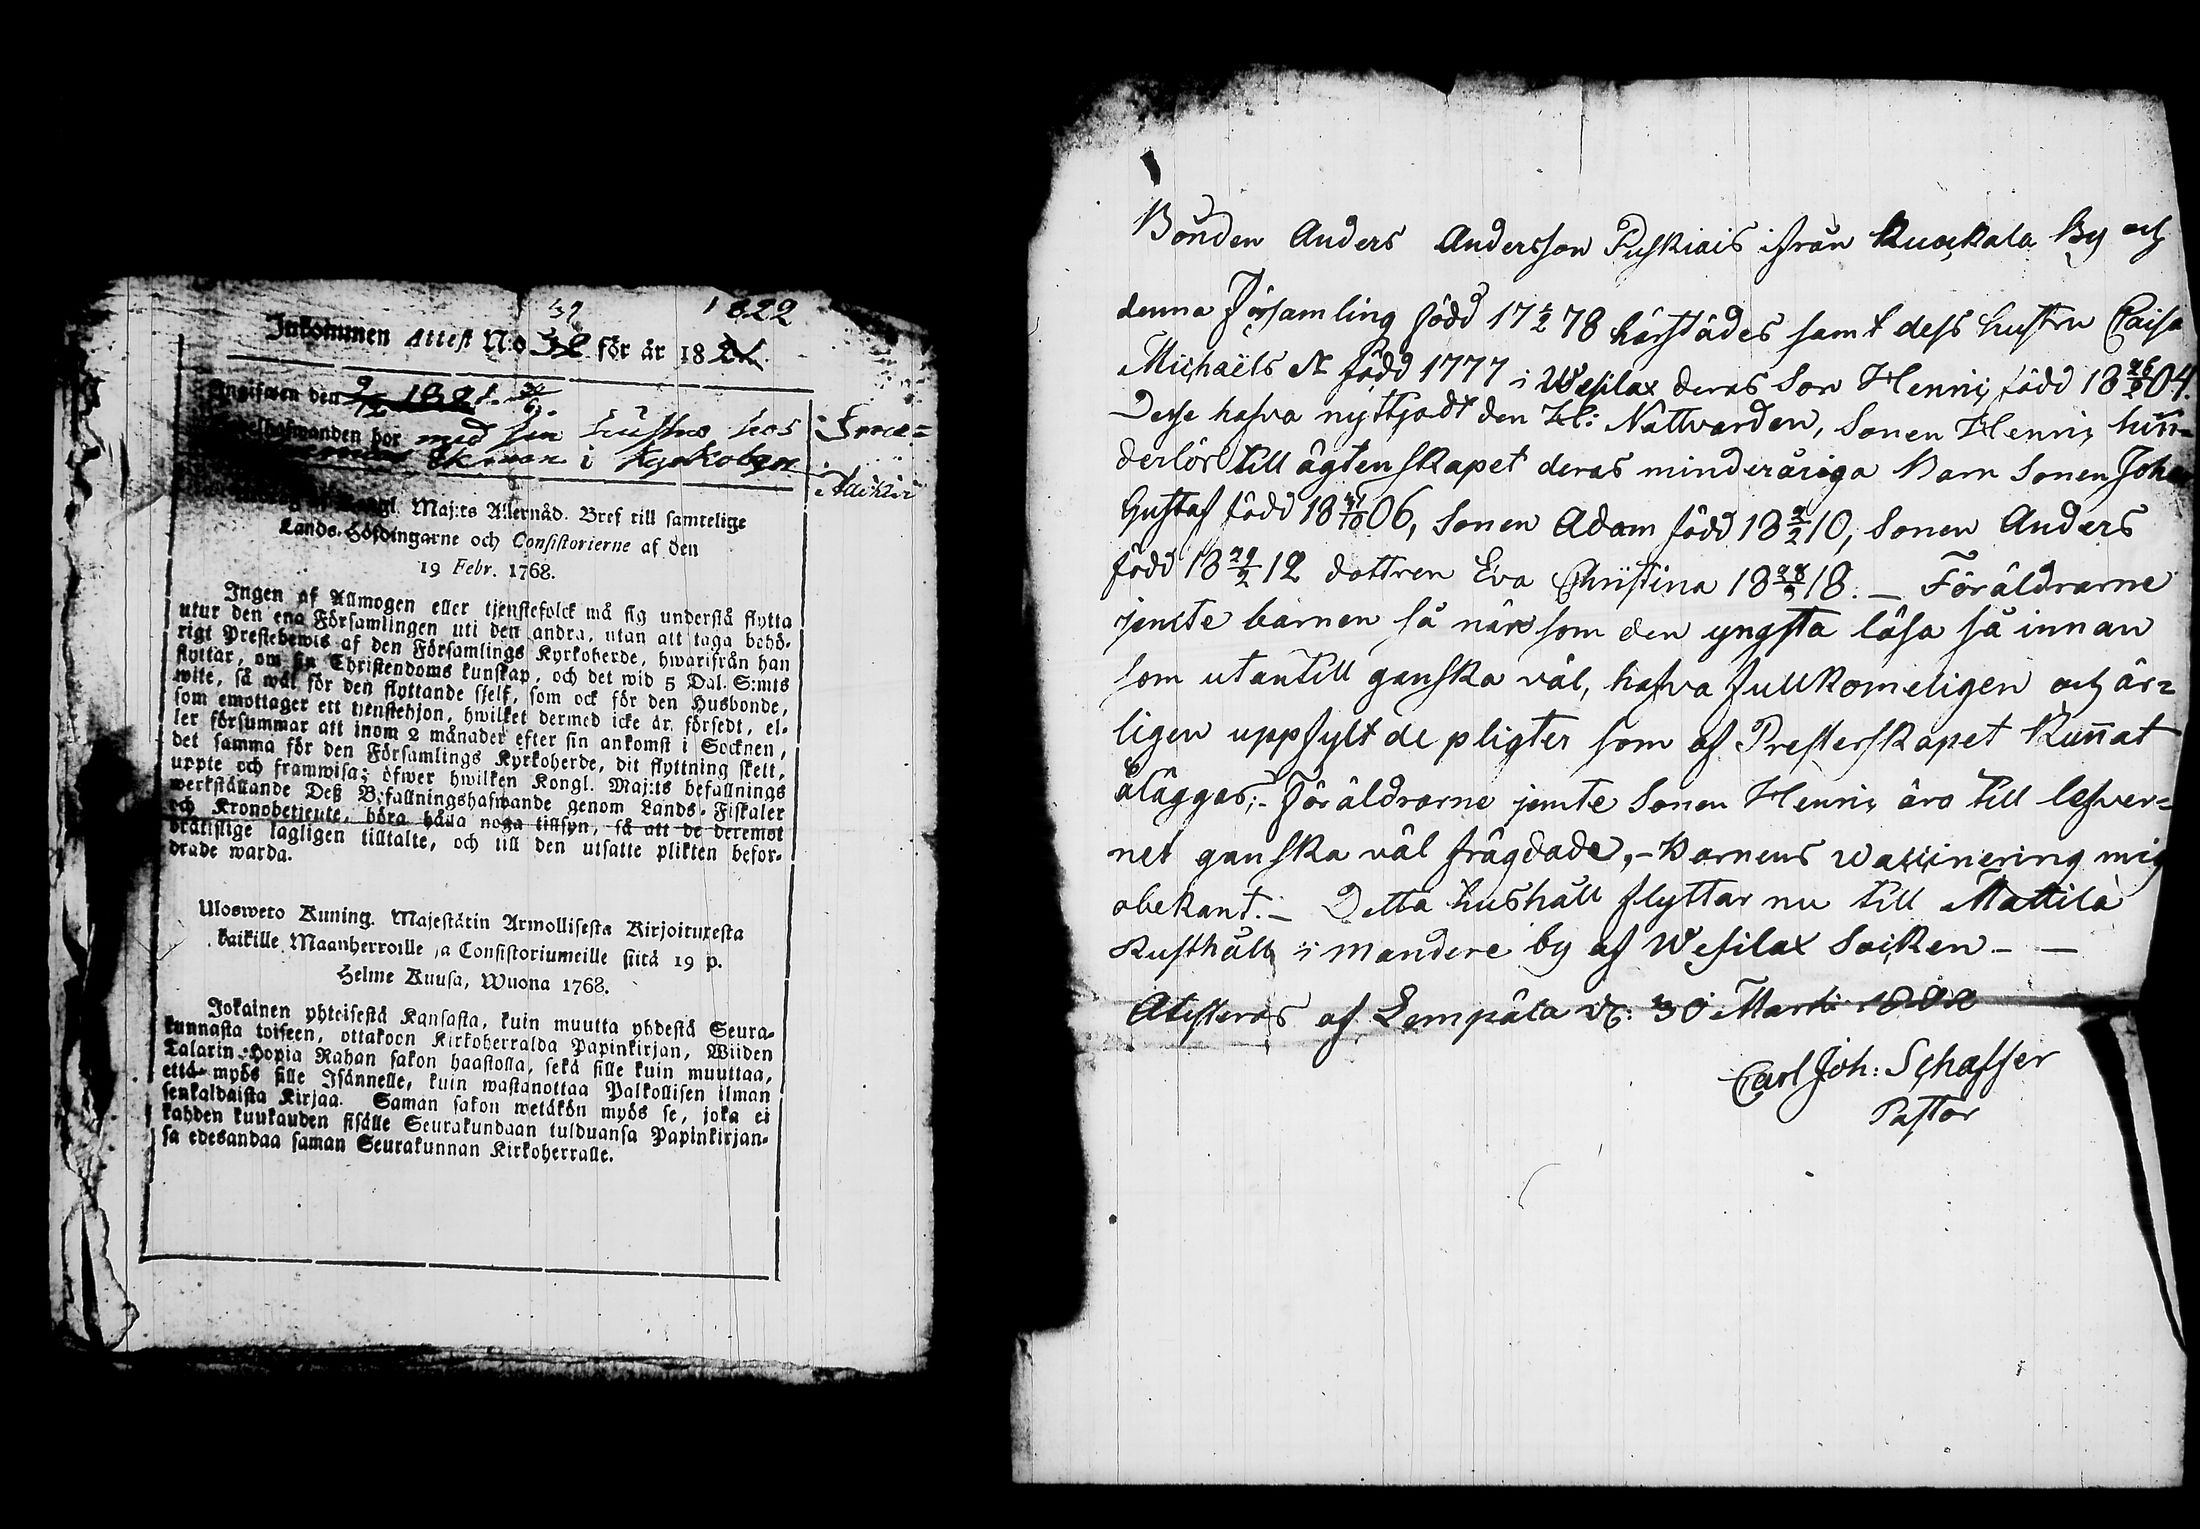 39 1822
Inkommen Attest N:o 38 för år 1821.
Angifwen den 9/12 1821. 30/6.
med sin hustru hos Smed=
i Kyrkobyn
Kongl. Maj:ts Allernåd. Bref till samtelige
Lands-Höfdingarne och Consistorierne af den
19 Febr. 1768.
Ingen af Allmogen eller tjenstefolck må sig understå flytta
utur den ena Församlingen uti den andra, utan att taga behö-
rigt Prestebewis af den Församlings Kyrkoherde, hwarifrån han
flyttar, om sin Christendoms kunskap, och det wid 5 Dal. S:mts
wite, så wäl för den flyttande sjelf, som ock för den Husbonde,
som emottager ett tjenstehjon, hwilket dermed icke är försedt, el-
ler försummar att inom 2 månader efter sin ankomst i Socknen,
det samma för den Församlings Kyrkoherde, dit flyttning skett,
uppte och framwisa; öfwer hwilken Kongl. Maj:ts befallnings
werkställande Deß Befallningshafwande genom Lands-Fiskaler
och Kronobetjente, böra hålla noga tillsyn, så att de deremot
brättslige lagligen tilltalte, och till den utsatte plikten befor-
drade warda.
Ulosweto Kuning. Majestätin Armollisesta Kirjoituxesta
kaikille Maanherroille ja Consistoriumeille siitä 19 p.
Helme Kuusa, Wuona 1768.
Jokainen yhteisestä Kansasta, kuin muutta yhdestä Seura-
kunnasta toiseen, ottakoon Kirkoherralda Papinkirjan, Wiiden
Talarin Hopia Rahan sakon haastolla, sekä sille kuin muuttaa,
että myös sille Isännelle, kuin wastanottaa Palkollisen ilman
senkaldaista Kirjaa. Saman sakon wetäkön myös se, joka ei
kahden kuukauden sisälle Seurakundaan tulduansa Papinkirjan-
sa edesandaa saman Seurakunnan Kirkoherralle.
Bonden Anders Andersson Puskiais ifrån Kuockala By och
denna Församling född 17 2 78 härstädes samt dess hustru Caisa
Michaëls Dr född 1777 i Wesilax deras Son Henric född 18 26/2 04.
Desse hafva nyttjadt den H: Nattvarden, Sonen Henric hin=
derlös till ägtenskapet deras minderåriga Barn Sonen Johan
Gustaf född 18 31/10 06, Sonen Adam född 18 2/2 10, Sonen Anders
född 18 29/2 12 dottren Eva Christina 18 28 18. _ Föräldrarne
jemte barnen så när som den yngsta läsa så innan
som utantill ganska väl, hafva fullkomeligen och är=
ligen uppfylt de pligter som af Presterskapet kunnat
åläggas; - Föräldrarne jemte Sonen Henric äro till lefver=
net ganska väl frägdade, - Barnens waccinering mig
obekant. _ Detta hushåll flyttar nu till Mattila
Rusthåll i Mandere by af Wesilax Socken _ _
Atesteras af Lempäla d: 30 Martii 1822
Carl Joh: Schaffer
Pastor